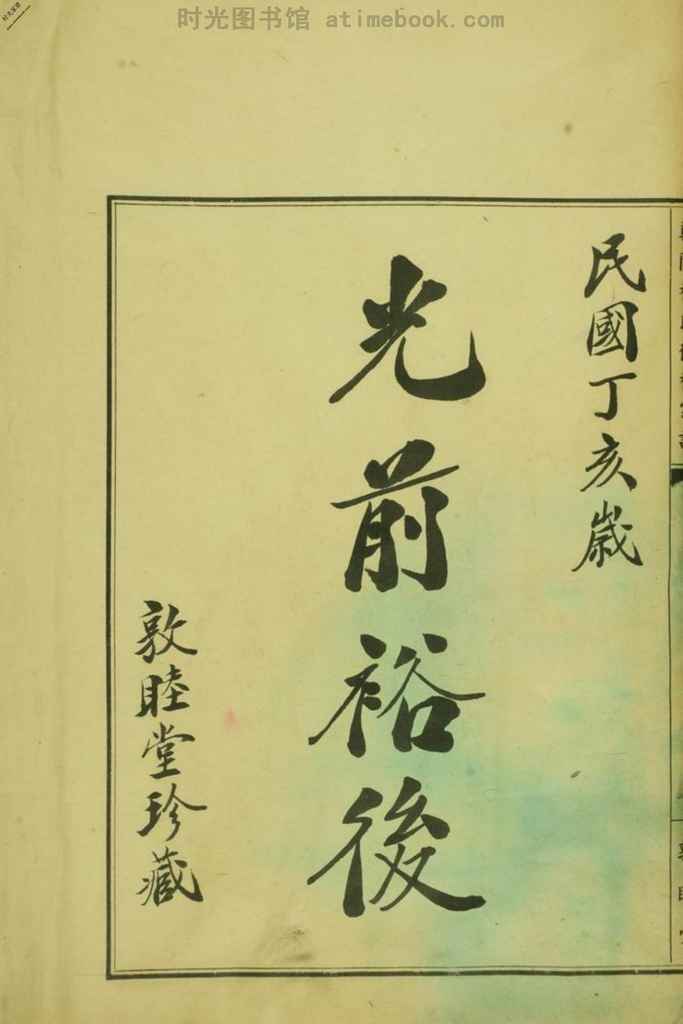 时光图书馆 atimebook.com
民國丁亥歲
光前裕後
敦睦堂珍藏